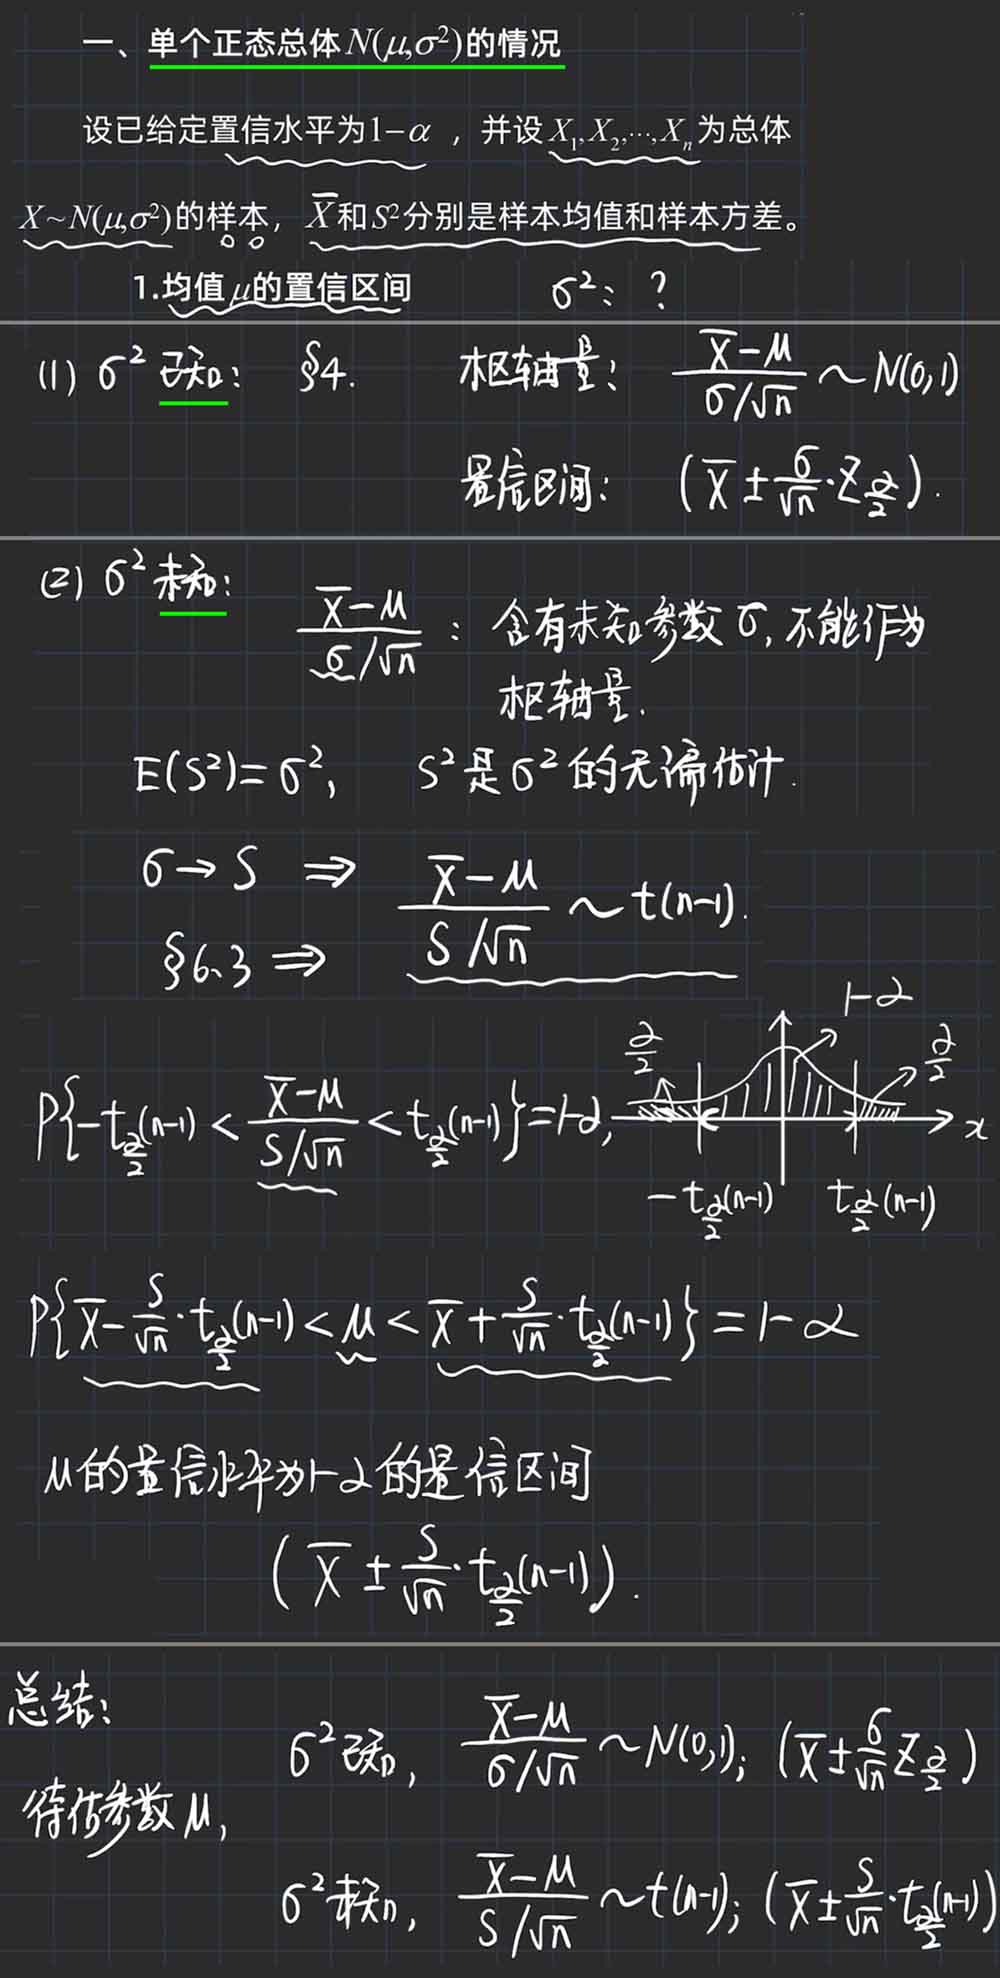 一、单个正态总体N(μ,σ²)的情况
设已给定置信水平为1-α ，并设X₁,X₂,⋯,Xₙ为总体
X~N(μ,σ²)的样本，X̅和S²分别是样本均值和样本方差。
1.均值μ的置信区间 σ²: ?
(1) σ² 已知: §4. 枢轴量: (X̅-μ)/(σ/√n) ~ N(0,1)
置信区间: (X̅ ± σ/√n · Z_{α/2}).
(2) σ² 未知:
(X̅-μ)/(σ/√n) : 含有未知参数σ, 不能作为
枢轴量.
E(S²)=σ², S²是σ²的无偏估计.
σ→S ⇒ (X̅-μ)/(S/√n) ~ t(n-1).
§6.3 ⇒
1-α
α/2 α/2
P{-t_{α/2}(n-1) < (X̅-μ)/(S/√n) < t_{α/2}(n-1)}=1-α, x
-t_{α/2}(n-1) t_{α/2}(n-1)
P{X̅ - S/√n · t_{α/2}(n-1) < μ < X̅ + S/√n · t_{α/2}(n-1)} = 1-α
μ的置信水平为1-α的置信区间
(X̅ ± S/√n · t_{α/2}(n-1)).
总结:
σ²已知, (X̅-μ)/(σ/√n) ~N(0,1); (X̅ ± σ/√n Z_{α/2})
待估参数μ,
σ²未知, (X̅-μ)/(S/√n) ~t(n-1); (X̅ ± S/√n · t_{α/2}(n-1))